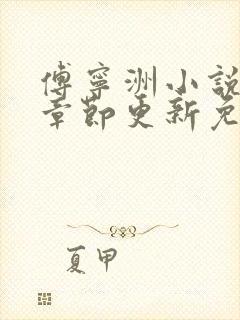 傅寧洲小說
章節更新免
夏甲